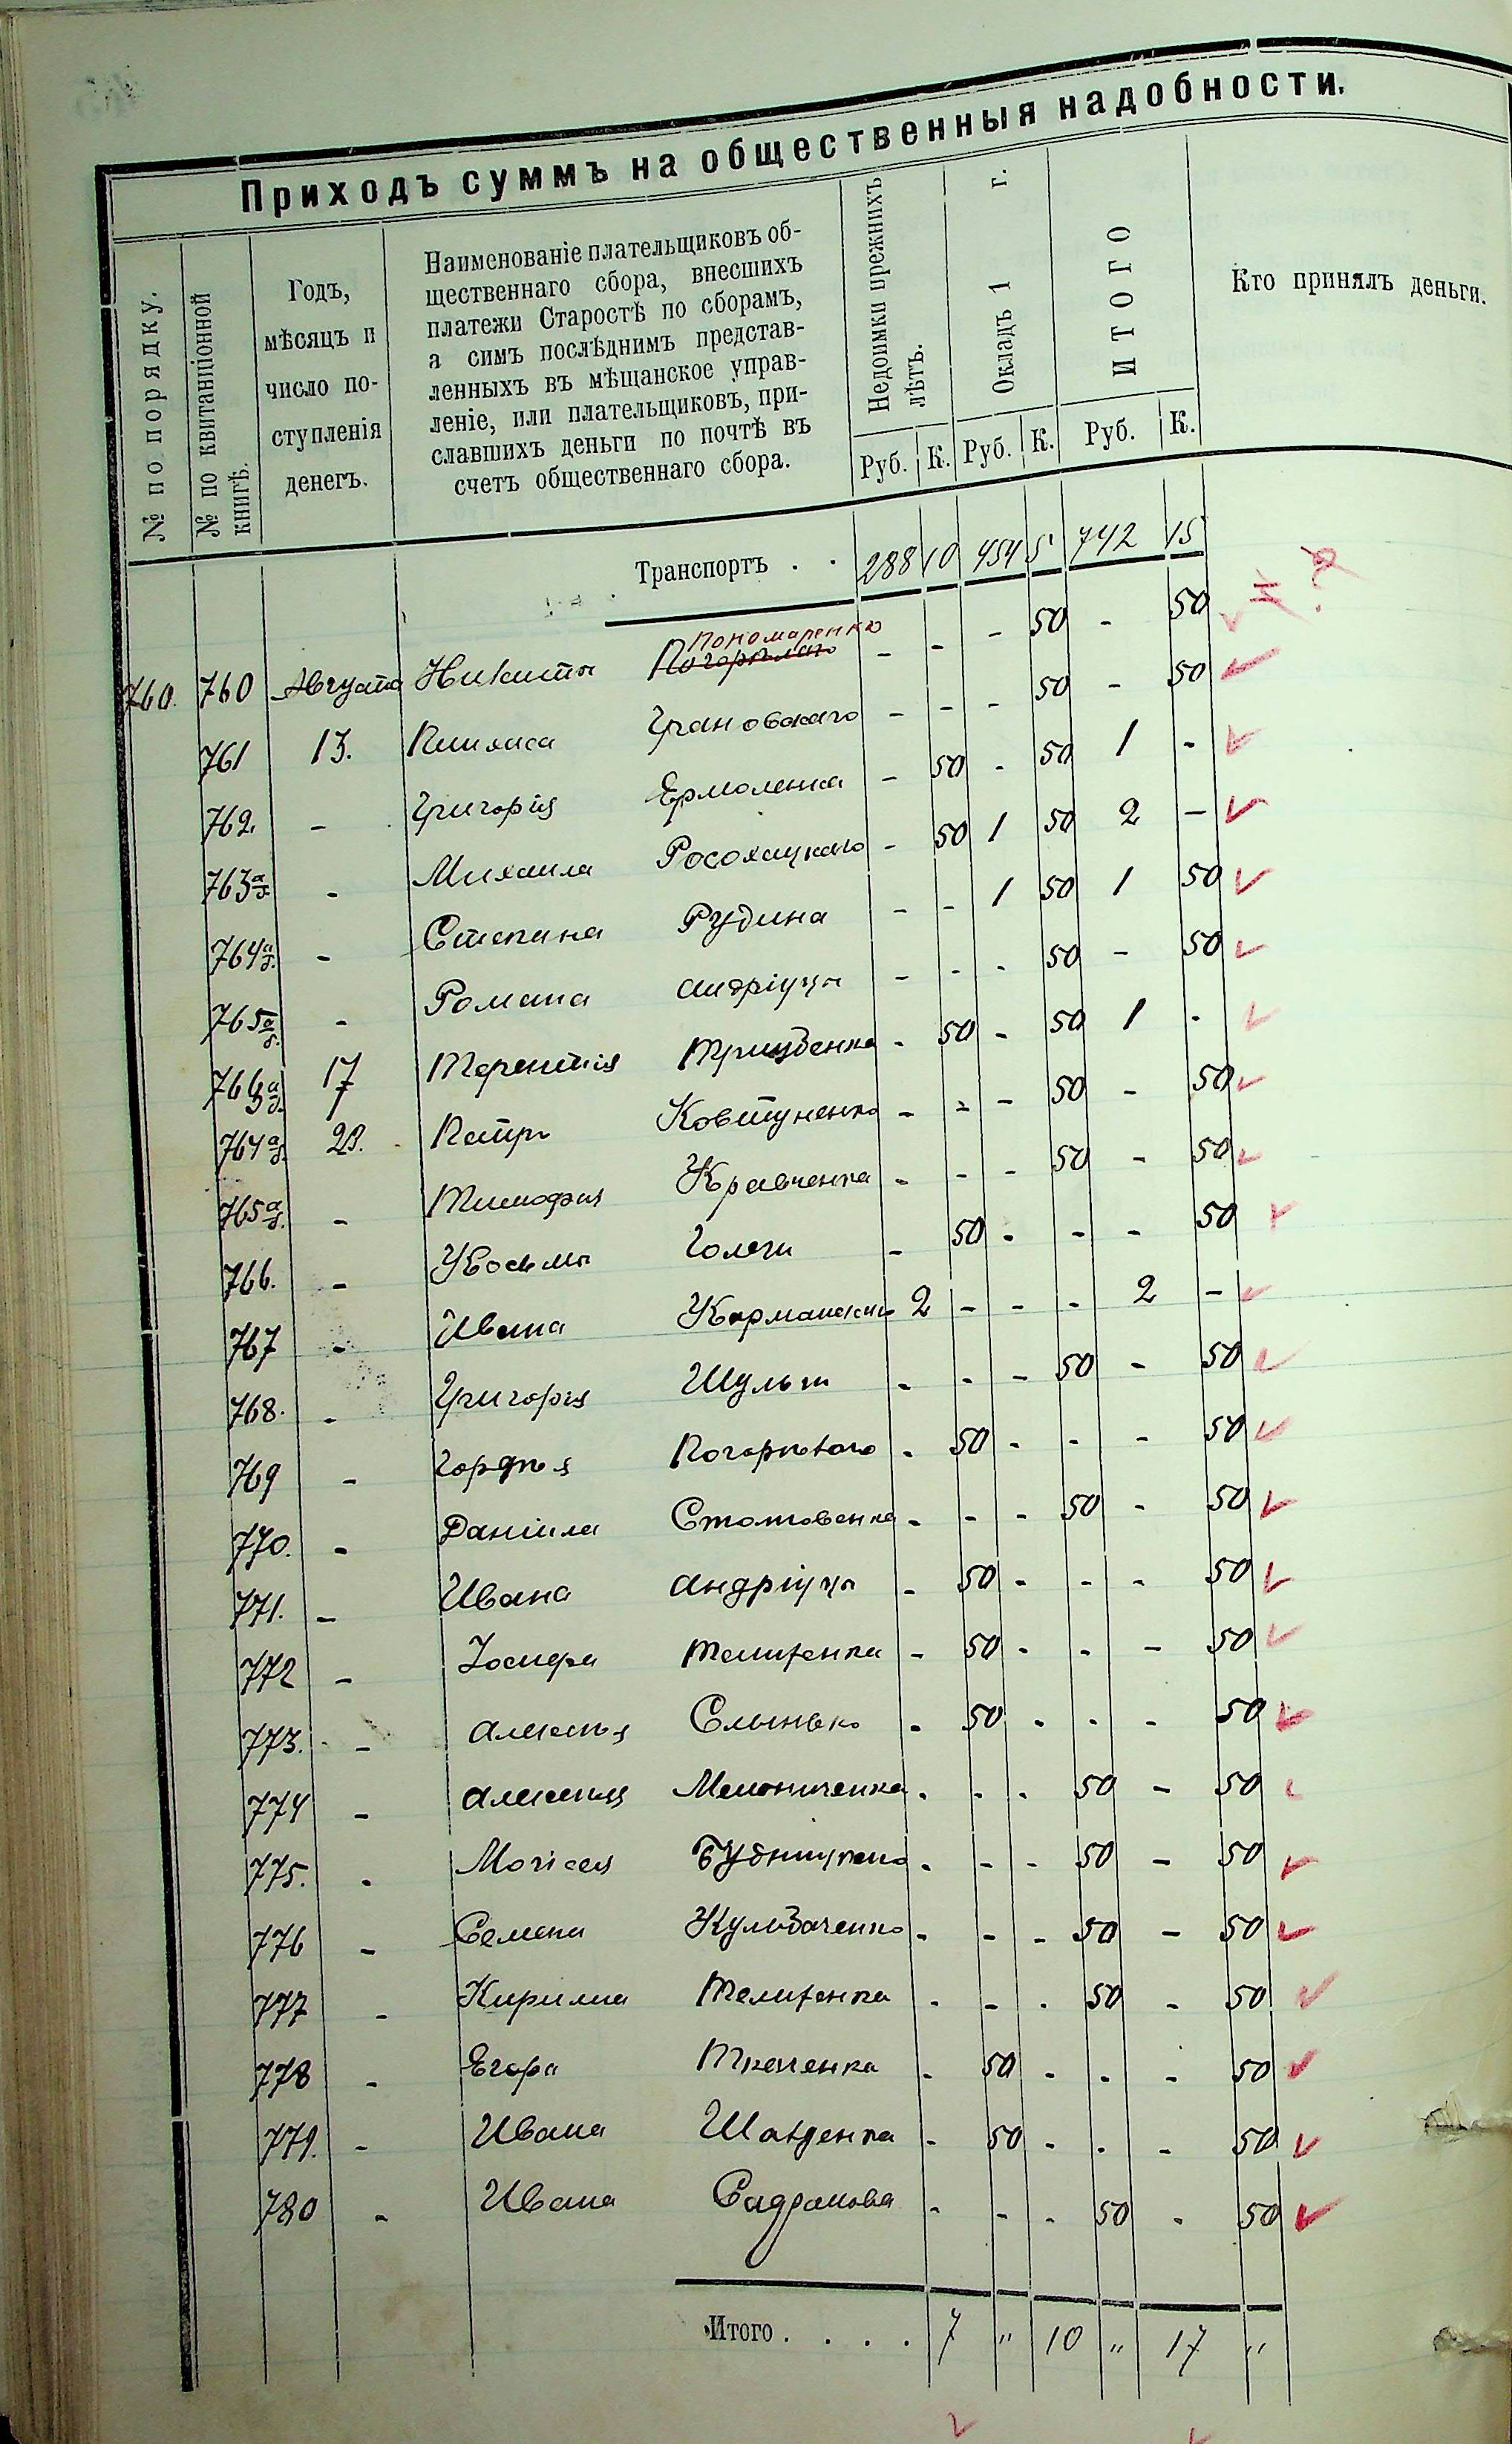 Приходъ суммъ на общественныя надобности.
№ по порядку.
№ по квитанціонной книгѣ.
Годъ,
мѣсяцъ и
число по-
ступленія
денегъ.
Наименованіе плательщиковъ об-
щественнаго сбора, внесшихъ
платежи Старостѣ по сборамъ,
а симъ послѣднимъ представ-
ленныхъ въ мѣщанское управ-
леніе, или плательщиковъ, при-
славшихъ деньги по почтѣ въ
счетъ общественнаго сбора.
Недоимки прежнихъ
лѣтъ.
Окладъ 1 г.
ИТОГО
Кто принялъ деньги.
Руб. К. Руб. К. Руб. К.
Транспортъ . . 288 10 454 5 742 15
Пономаренко
760. 760 Августа Никиты - - - 50 - 50
761 13. Пинхаса Грановскаго - - - 50 - 50
762. - Григорія Ермоленка - 50 - 50 1 -
763 а/б. - Михаила Росохацкаго - 50 1 50 2 -
764 а/б. - Степана Рудина - - 1 50 1 50
765 а/б. - Романа Андріуцы - - - 50 - 50
766 а/б. 17 Терентія - 50 - 50 1 -
764 а/б. 23. Петра Ковтуненка - - - 50 - 50
765 а/б. - Тимофея Кравченка - - - 50 - 50
766. - Козьмы Голеги - 50 - - - 50
767 - Ивана 2 - - - 2 -
768. - Григорія Шульги - - - 50 - 50
769 - Гордѣя Погорѣлаго - 50 - - - 50
770. - Даніила - - - 50 - 50
771. - Ивана Андріуцы - 50 - - - 50
772 - Іосифа Телиженка - 50 - - - 50
773. - Алексѣя Слынько - 50 - - - 50
774 - Алексѣя Мельниченка - - - 50 - 50
775. - Моисея - - - 50 - 50
776 - Семена Кульбаченко - - - 50 - 50
777 - Кирилла Телиженка - - - 50 - 50
778 - Егора Ткаченка - 50 - - - 50
779. - Ивана - 50 - - - 50
780 - Ивана - - - 50 - 50
Итого . . . . 7 " 10 " 17 "